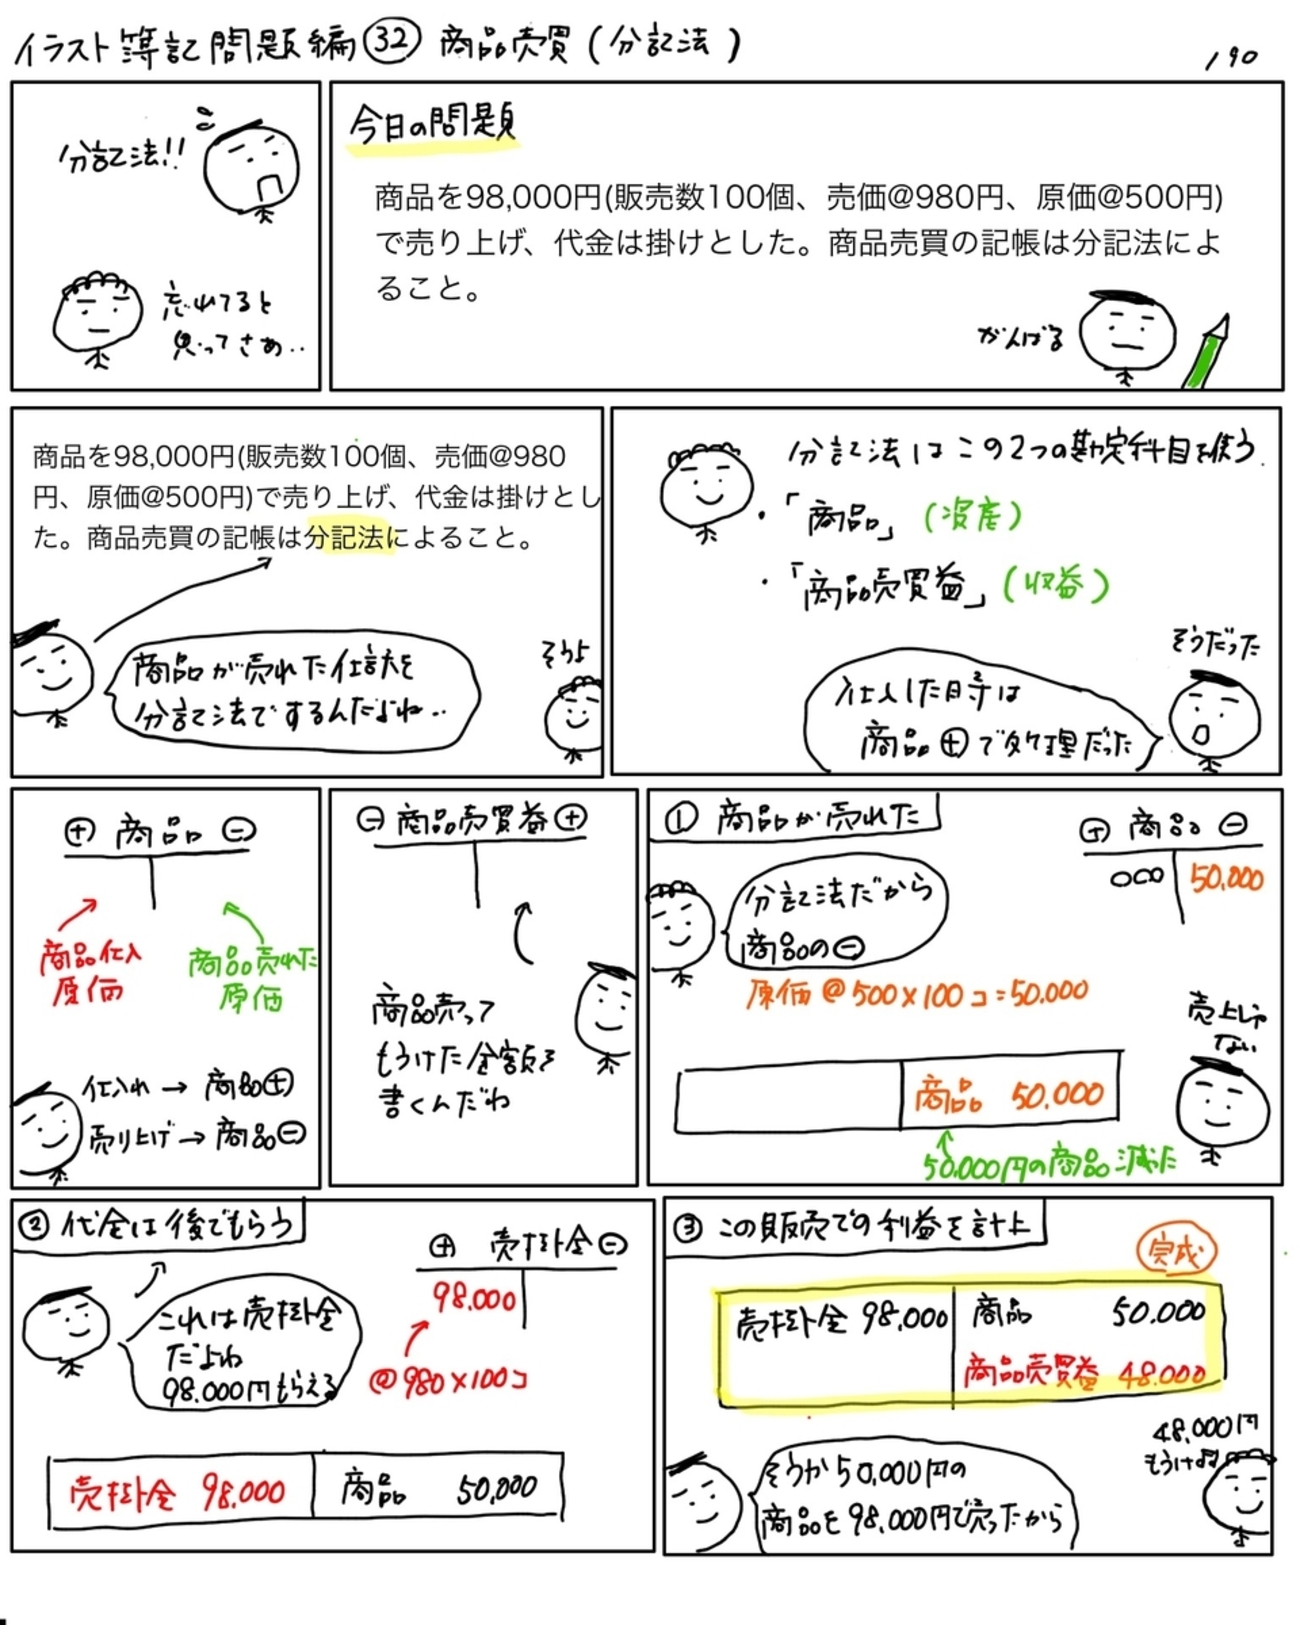 イラスト簿記問題編㉜ 商品売買(分記法)
190
分記法!!
忘れてると
思ってさぁ..
今日の問題
商品を98,000円(販売数100個、売価@980円、原価@500円)
で売り上げ、代金は掛けとした。商品売買の記帳は分記法によ
ること。
がんばる
商品を98,000円(販売数100個、売価@980
円、原価@500円)で売り上げ、代金は掛けとし
た。商品売買の記帳は分記法によること。
商品が売れた仕訳を
分記法でするんだよね..
そうよ
分記法はこの2つの勘定科目を使う.
・「商品」(資産)
・「商品売買益」(収益)
そうだった
仕入した時は
商品⊕で処理だった
⊕ 商品 ⊖
商品仕入
原価
商品売れた
原価
仕入れ → 商品⊕
売り上げ → 商品⊖
⊖ 商品売買益 ⊕
商品売って
もうけた金額を
書くんだね
① 商品が売れた
⊕ 商品 ⊖
○○○ 50.000
分記法だから
商品の⊖
原価@500×100コ=50.000
売上じゃ
ない
商品 50.000
50.000円の商品減った
② 代金は後でもらう
⊕ 売掛金 ⊖
98.000
これは売掛金
だよね
98.000円もらえる
@980×100コ
売掛金 98.000 商品 50,000
③ この販売での利益を計上
完成
売掛金 98,000 商品 50.000
商品売買益 48.000
48,000円
もうけよ
そうか50,000円の
商品を98,000円で売ったから